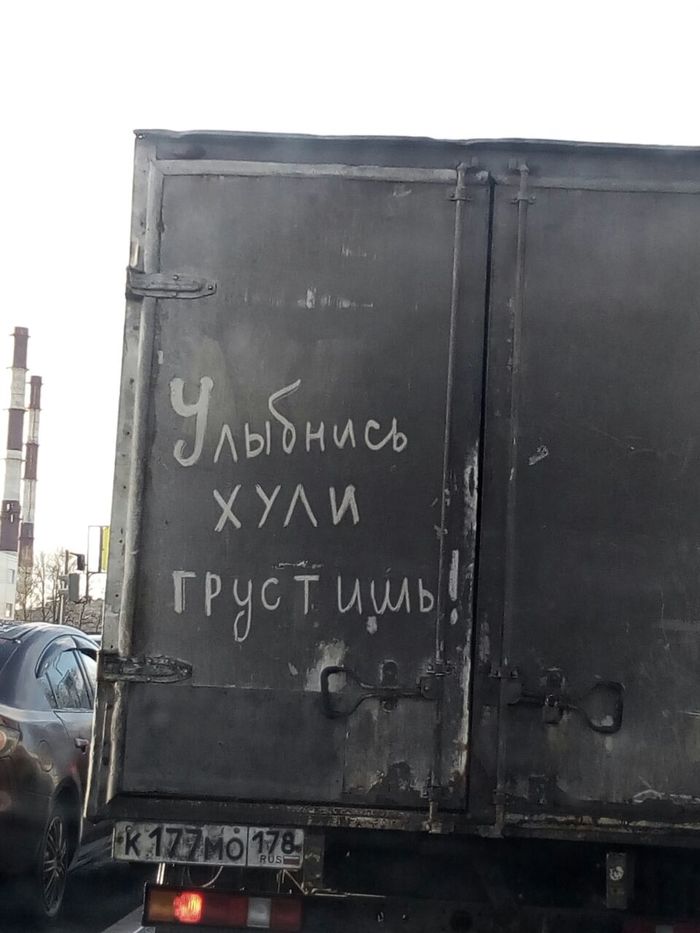 Улыбнись
хули
грустишь!
К177МО 178
RUS